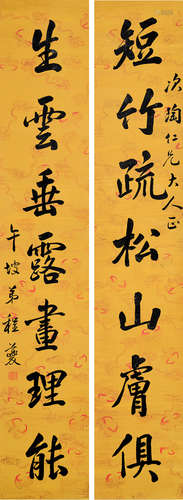 短竹疏松山膚俱
次陶仁兄大人正
生雲垂露畫理能
午坡弟程